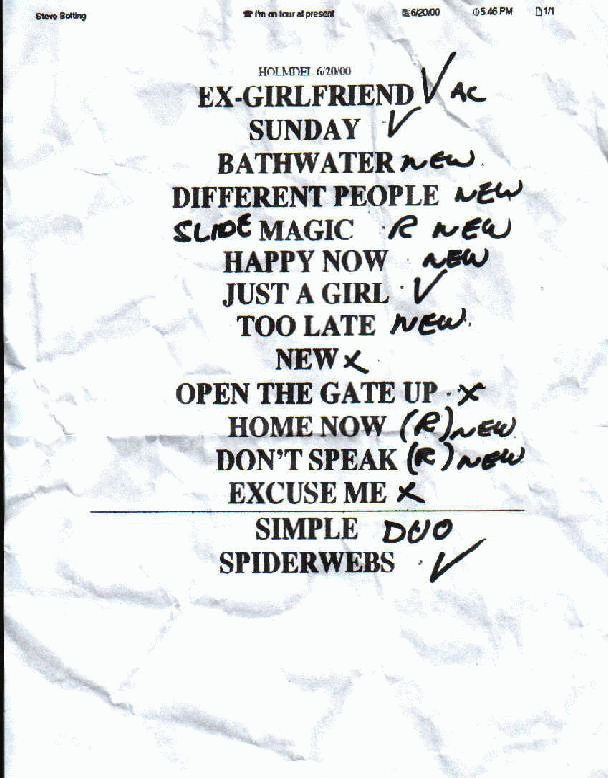 Steve Bolting I'm on tour at present 6/20/00 5:46 PM 1/1
HOLMDEL 6/20/00
EX-GIRLFRIEND ✓ AC
SUNDAY ✓
BATHWATER NEW
DIFFERENT PEOPLE NEW
SLIDE MAGIC R NEW
HAPPY NOW NEW
JUST A GIRL ✓
TOO LATE NEW
NEW X
OPEN THE GATE UP X
HOME NOW (R) NEW
DON'T SPEAK (R) NEW
EXCUSE ME X
SIMPLE DUO
SPIDERWEBS ✓